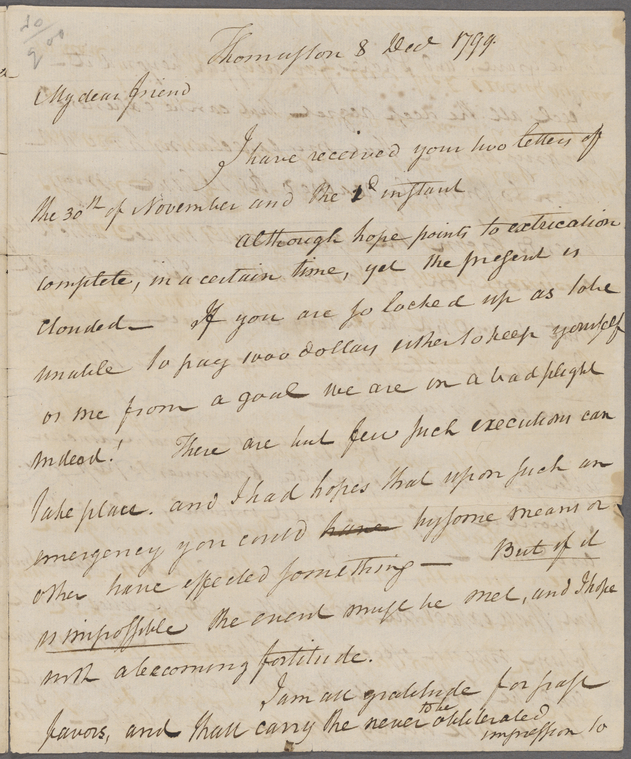 Thomaston 8 Decr 1799.
My dear friend
I have received your two letters of
the 30th of November and the 2d instant
Although hope points to extrication
complete, in a certain time, yet the present is
clouded— If you are so locked up as to be
unable to pay 1000 dollars either to keep yourself
or me from a goal we are in a bad plight
indeed! There are but few such executions can
take place. and I had hopes that upon such an
emergency you could have by some means or
other have effected something— But if it
is impossible the event must be met, and I hope
with a becoming fortitude.
I am all gratitude for past
favors, and shall carry the never to be obliterated
impression to